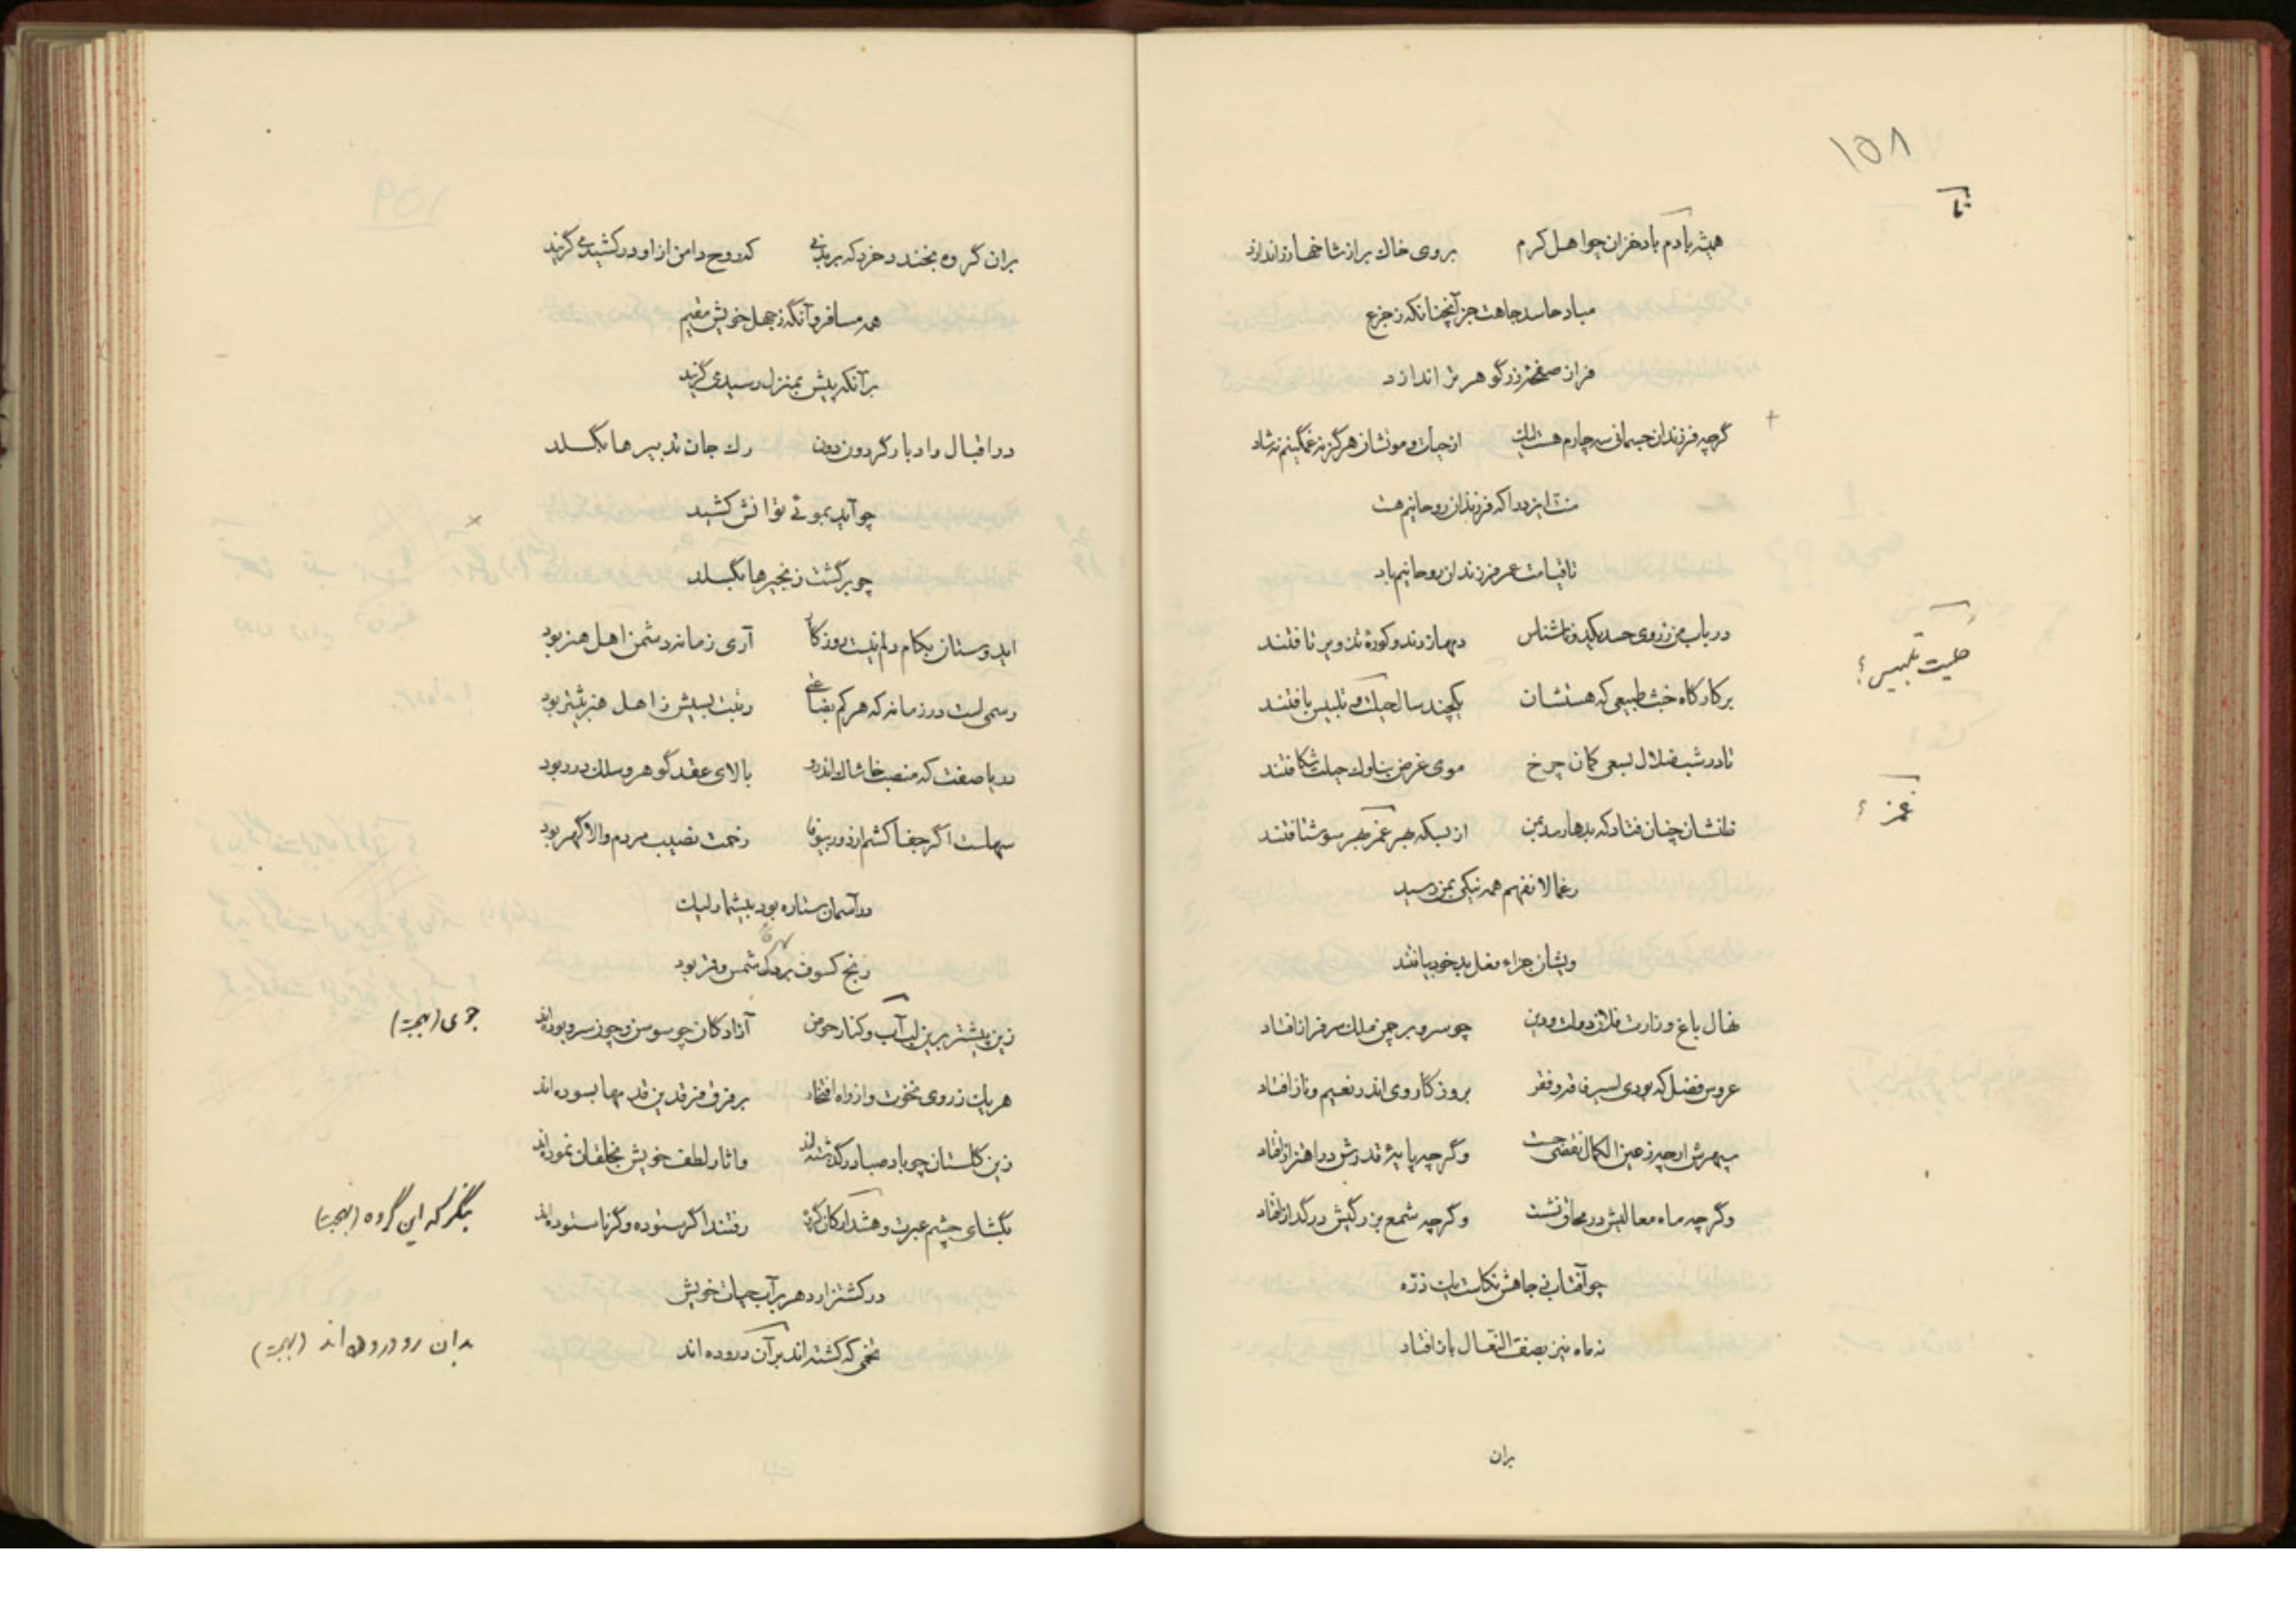 ١٥٨
تا
همیشه بادم باد خزان چو اهل کرم بروی خاک براز شاخها زر اندازد
مباد حاسد جاهت جز آنچنانکه ز جزع
فراز صفحه زر گوهر تر اندازد
گرچه فرزندان جسمانی سه چارم هست لیک از حیات و موتشان هرگز نه غمگینم نه شاد
منت ایزد را که فرزندان روحانیم هست
تا قیامت عمر فرزندان روحانیم باد
در باب من ز روی حسد یکدو ناشناس دمها زدند و کوره تزویر تافتند
بر کارگاه خبث طبیعی که هستشان یکچند سال حیلت و تلبیس بافتند
حلیت تلبیس؟
تا در شب ضلال بسعی کمان چرخ موی غرض بناوک حیلت شکافتند
ظنشان چنان فتاد که بدها رسد بمن از بسکه بهر غمز بهر سو شتافتند
غمز؟
رغما لانفهم همه نیکی بمن رسید
ویشان جزاء فعل بد خود بیافتند
نهال باغ وزارت فلان دولت و دین چو سرو بر چمن ملک سرفراز افتاد
عروس فضل که بودی اسیر فاقه و فقر بروزگار وی اندر نعیم و ناز افتاد
سپهرش ار چه ز عین الکمال نقصی جست وگرچه پایه قدرش در اهتزاز افتاد
وگرچه ماه معالیش در محاق نشست وگرچه شمع بزرگیش در گداز افتاد
چو آفتاب ز جاهش نکاست یک ذره
نه ماه نیز بصف النعال باز افتاد
بران
١٥٩
بران گروه بخندد خرد که بر بدنی که روح دامن از او درکشید می گریند
همه مسافر و آنگه ز جهل خویش مقیم
بر آنکه پیش بمنزل رسید می گریند
در اقبال و ادبار گردون دون رک جان تدبیرها بگسلد
چو آید بموئی توانش کشید
چو برگشت زنجیرها بگسلد
ایدوستان بکام دلم نیست روزگار آری زمانه دشمن اهل هنر بود
رسمی است در زمانه که هر کم بضاعتی رتبت بسیش ز اهل هنر بیشتر بود
دریا صفت که منصب خاشاک اندرو بالای عقد گوهر و سلک درر بود
سهلست اگر جفا کشم از دور بیوفا زحمت نصیب مردم والا گهر بود
در آسمان ستاره بود بیشمار لیک
رنج کسوف بر دل شمس و قمر بود
زین پیشتر برین لب آب و کنار حوض آزادگان چو سوسن و چون سرو بوده اند
جوی (بهجت)
هر یک ز روی نخوت و از راه افتخار بر فرق فرقدین قدمها بسوده اند
زین گلستان چو باد صبا درگذشته اند وآثار لطف خویش بخلقان نموده اند
بگشای چشم عبرت و هشدار کان گروه رفتند اگر ستوده وگر ناستوده اند
بنگر که این گروه (بهجت)
در کشتزار دهر بر آب حیات خویش
تخمی که کشته اند بر آن دروده اند
بدان رو دروده اند (بهجت)